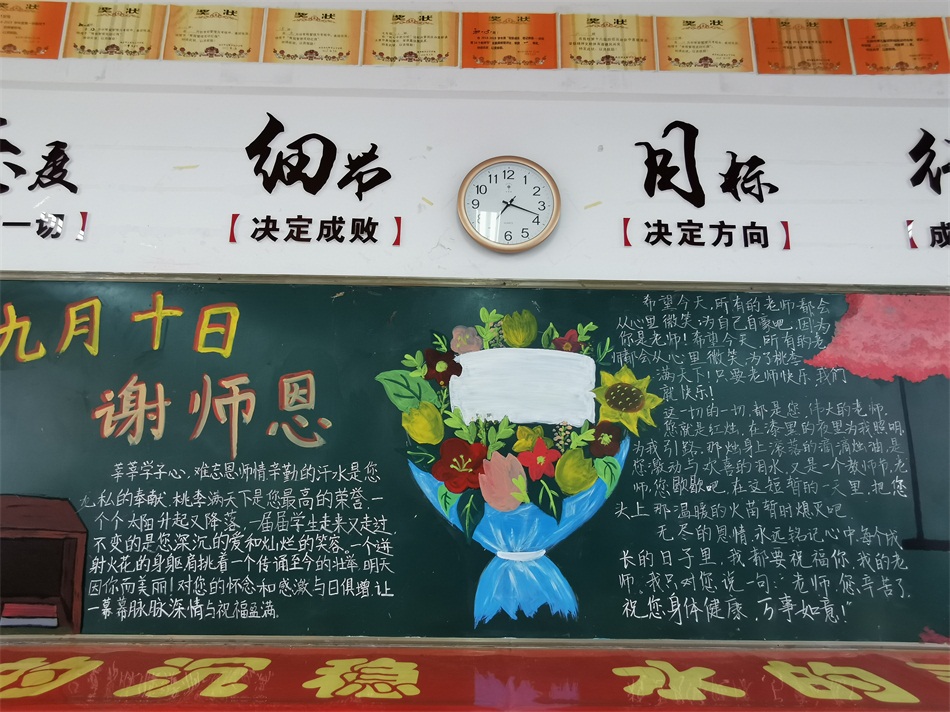 奖状
奖状
奖状
奖状
奖状
奖状
奖状
奖状
度 细节 目标
一切】 【决定成败】 【决定方向】 【成
12
1
2
3
4
5
6
7
8
9
10
11
九月十日
谢师恩
莘莘学子心,难忘恩师情辛勤的汗水是您
无私的奉献.桃李满天下是您最高的荣誉.一
个个太阳升起又降落,一届届学生走来又走过,
不变的是您深沉的爱和灿烂的笑容。一个迸
射火花的身躯肩挑着一个传诵至今的壮举.明天
因你而美丽!对您的怀念和感激与日俱增,让
一幕幕脉脉深情与祝福盈满.
希望今天,所有的老师都会
从心里微笑,为自己自豪吧,因为
你是老师!希望今天,所有的老
师都会从心里微笑,为了桃李
满天下!只要老师快乐,我们
就快乐!
这一切的一切,都是您,伟大的老师.
您就是红烛,在漆黑的夜里为我照明,
为我引路,那烛身上滚落的滴滴烛油,是
您激动与欢喜的泪水,又是一个教师节,老
师,您歇歇吧,在这短暂的一天里,把您
头上那温暖的火苗暂时熄灭吧.
无尽的恩情,永远铭记心中.每个成
长的日子里,我都要祝福你,我的老
师.我只对您说一句:“老师,您辛苦了.
祝您身体健康,万事如意!”
的沉稳 水的